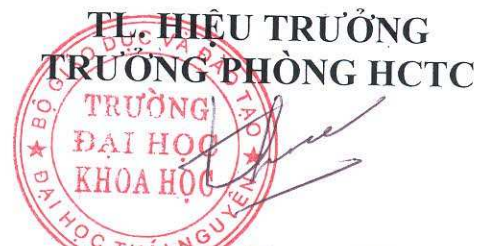 TL. HIỆU TRƯỞNG
TRƯỞNG PHÒNG HCTC
BỘ GIÁO DỤC VÀ ĐÀO TẠO
TRƯỜNG
ĐẠI HỌC
KHOA HỌC
★ ĐẠI HỌC THÁI NGUYÊN ★